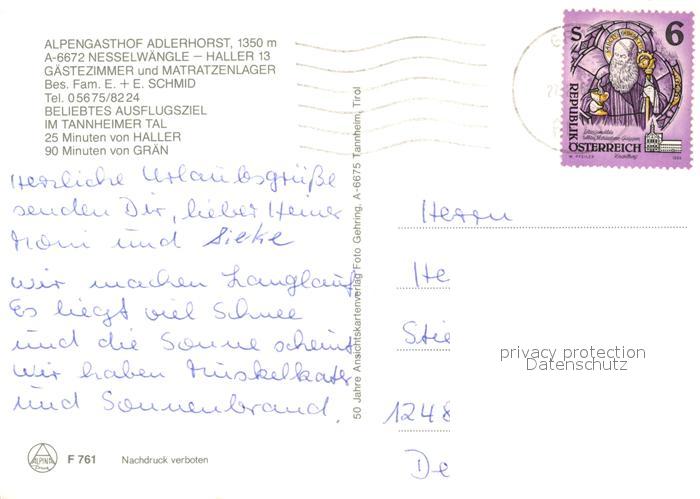 ALPENGASTHOF ADLERHORST, 1350 m
A-6672 NESSELWÄNGLE – HALLER 13
GÄSTEZIMMER und MATRATZENLAGER
Bes. Fam. E. + E. SCHMID
Tel. 05675/8224
BELIEBTES AUSFLUGSZIEL
IM TANNHEIMER TAL
25 Minuten von HALLER
90 Minuten von GRÄN
Herzliche Urlaubsgrüße
senden Dir, lieber Heiner
Moni und
Wir machen Langlauf
Es liegt viel Schnee
und die Sonne scheint
Wir haben Muskelkater
und Sonnenbrand.
ALPINA
Druck
F 761 Nachdruck verboten
50 Jahre Ansichtskartenverlag Foto Gehring, A-6675 Tannheim, Tirol
S 6
REPUBLIK
ÖSTERREICH
Herrn
He
Stie
1248
De
privacy protection
Datenschutz